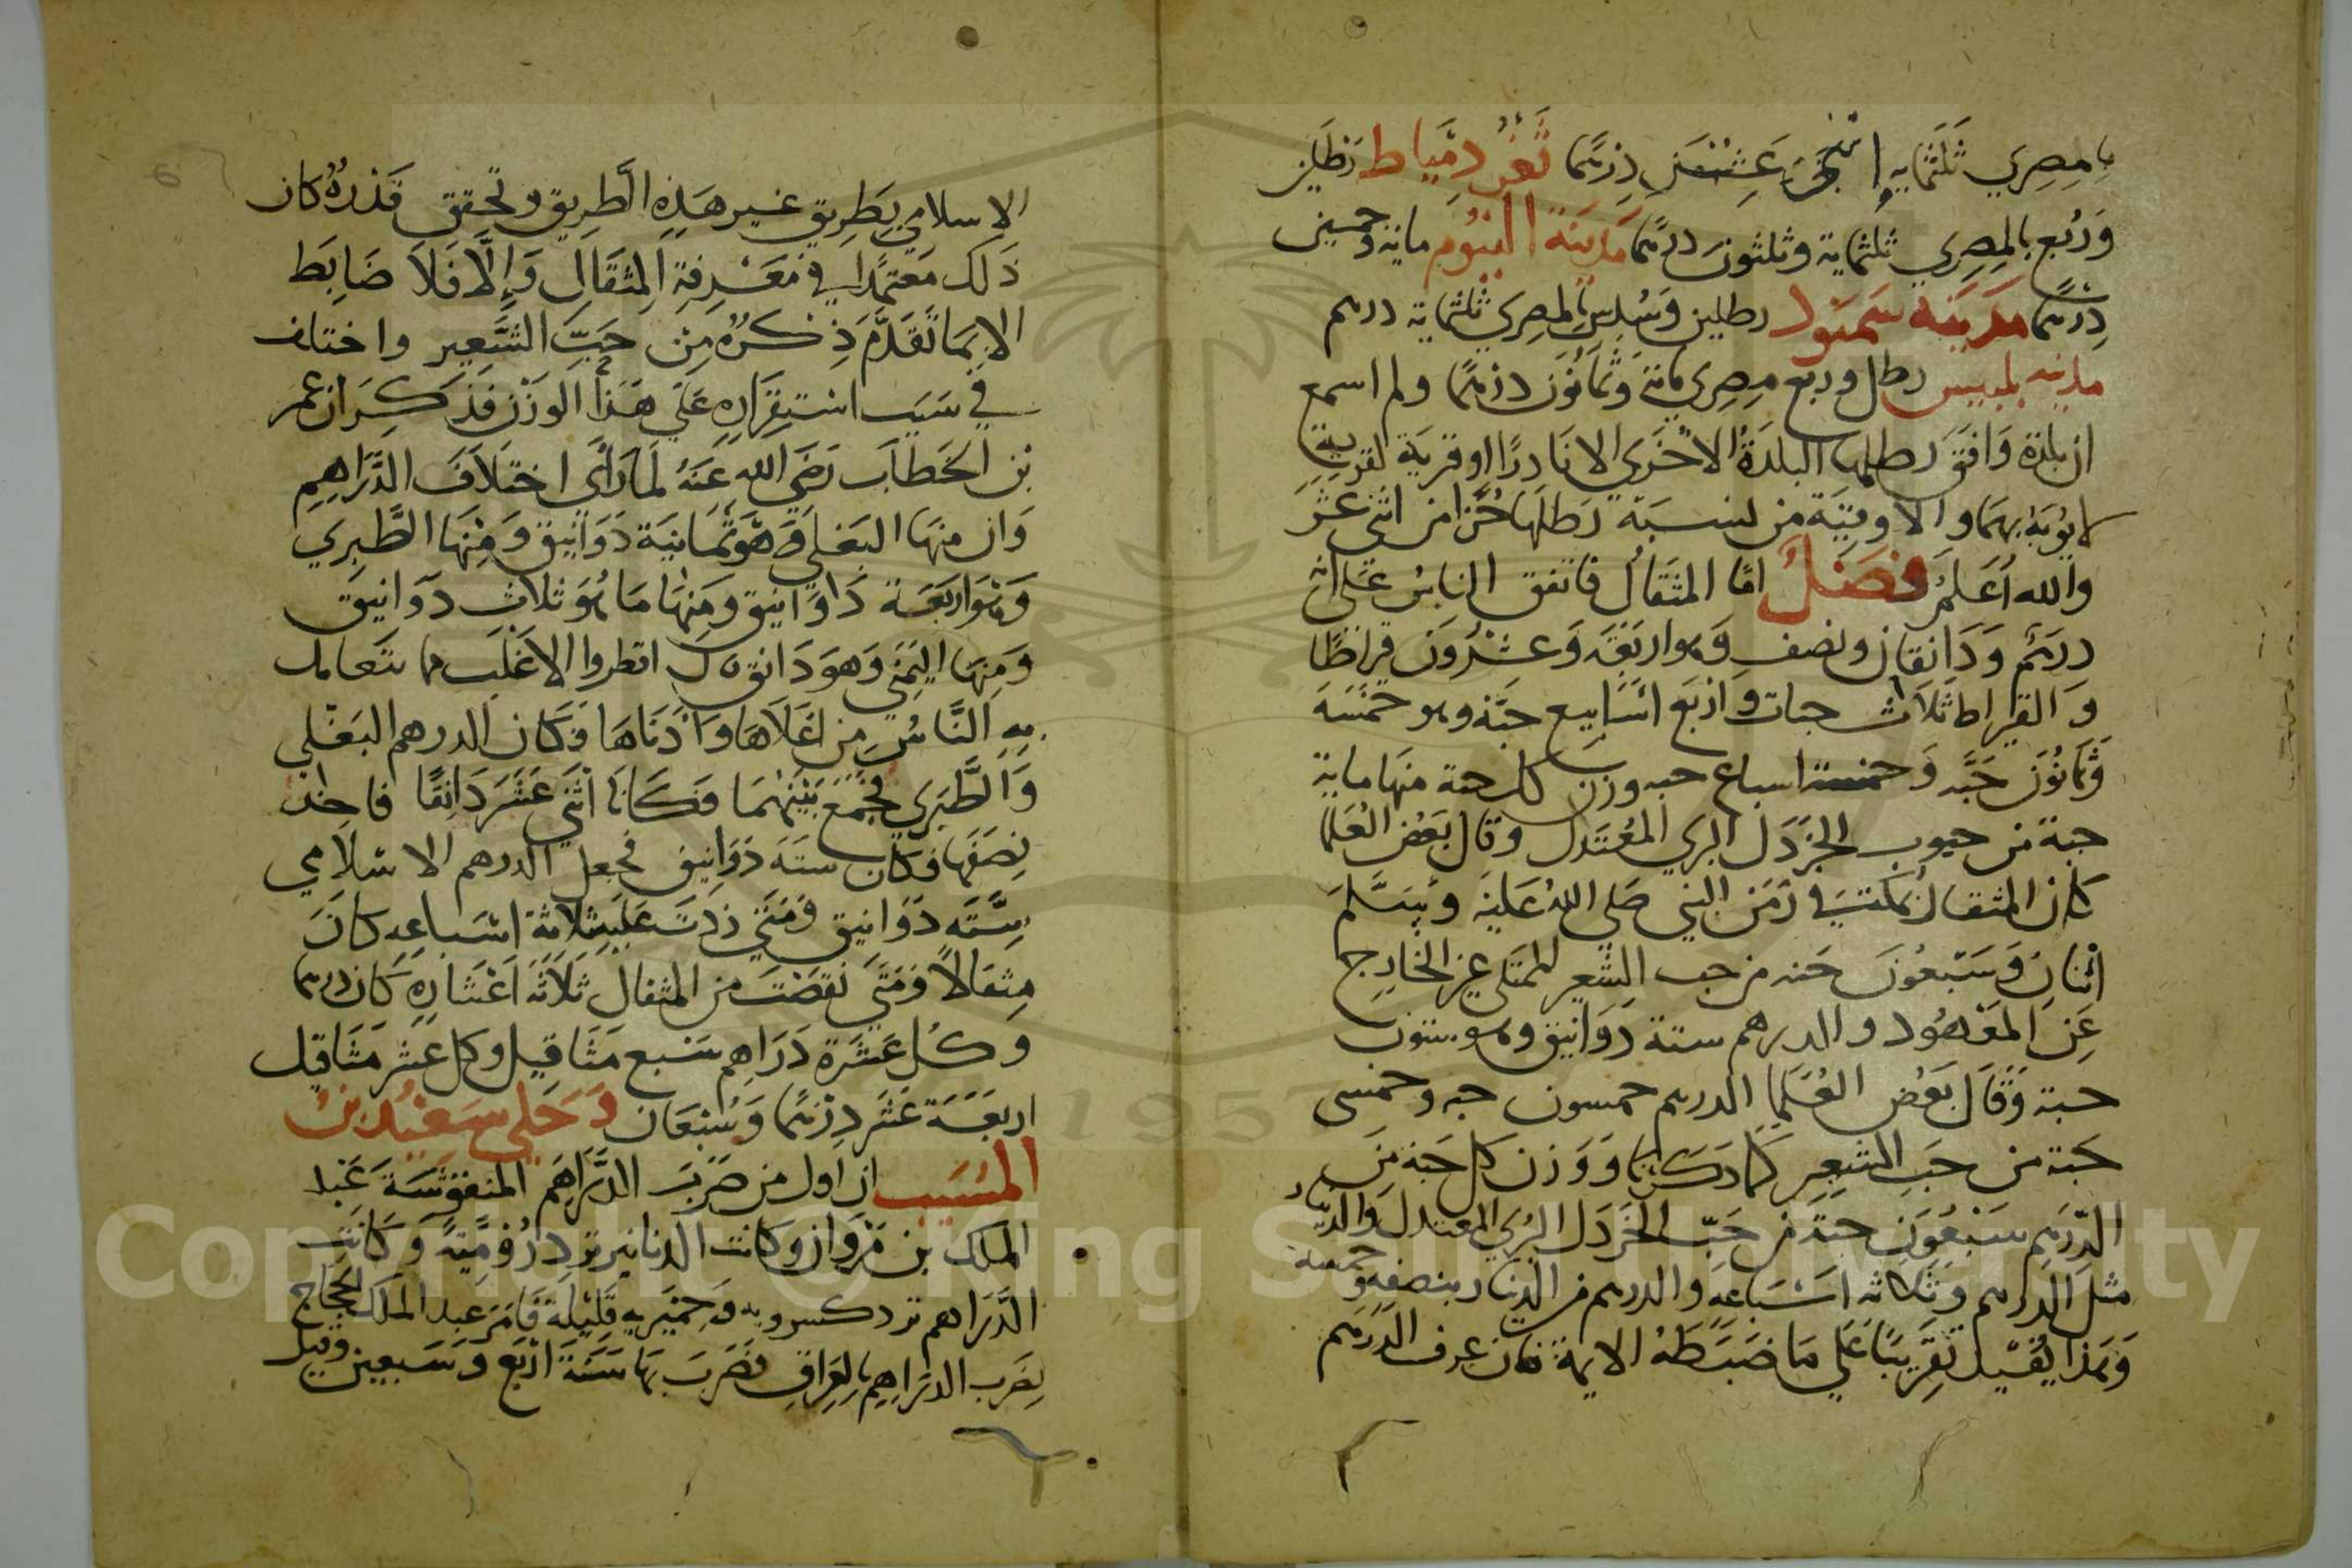 بالمصري ثلثمايه و اثني عشر درهما ثغر دمياط رطلين
وربع بالمصري ثلثماية وثلثون درهما مدينة الفيوم ماية وخمسين
درهما مدينه سمنود رطلين وسدس بالمصري ثلثماية درهم
مدينه بلبيس رطل وربع مصري ماية وثمانون درهما ولم اسمع
ان بلدة وافق رطلها البلدة الاخري الا نادرا او قرية لقرية
لا يوبه بهما والاوقية من نسبة رطلها جزا من اثني عشر
والله اعلم فصل اما المثقال فاتفق الناس علي انه
درهم ودانقان ونصف وهو اربعة وعشرون قراطا
و القيراط ثلاث حبات واربع اسابيع حبة وهو خمسة
وثمانون حبه وخمسة اسباع حبه وزن كل حبة منها ماية
حبة من حبوب الخردل البري المعتدل وقال بعض العلما
كان المثقال بمكة في زمن النبي صلي الله عليه وسلم
اثنان وسبعون حبه من حب الشعير الممتلي غير الخارج
عن المعهود والدرهم ستة دوانيق وهو ستون
حبة وقال بعض العلما الدرهم خمسون حبه وخمسي
حبة من حب الشعير كما ذكرنا ووزن كل حبة من
الدرهم سبعون حبة من حب الخردل البري المعتدل والدينار
مثل الدرهم وثلاثه اسباعه والدرهم من الدينار بنصفه وخمسه
وهذا يقيل تقريبا علي ما ضبطه الايمة فان عرف الدرهم
الاسلامي بطريق غير هذه الطريق وتحقق قدره كان
ذلك معتمدا في معرفة المثقال والا فلا ضابط
الا بما تقدم ذكره من حب الشعير واختلف
في سبب استقراره علي هذا الوزن فذكر ان عمر
بن الخطاب رضي الله عنه لما راي اختلاف الدراهم
وان منها البغلي وهو ثمانية دوانيق ومنها الطبري
وهو اربعة داوانيق ومنها ما هو ثلاث دوانيق
ومنها اليمني وهو دانق قال انظروا الاغلب مما يتعامل
به الناس من اعلاها وادناها فكان الدرهم البغلي
والطبري فجمع بينهما فكانا اثني عشر دانقا فاخذ
نصفها فكان ستة دوانيق فجعل الدرهم الاسلامي
سته دوانيق ومتي زدت عليه ثلاثة اسباعه كان
مثقالا ومتي نقصت من المثقال ثلاثة اعشاره كان درهما
وكل عشرة دراهم سبع مثاقيل وكل عشر مثاقيل
اربعة عشر درهما وسبعان وحكي سعيد بن
المسيب ان اول من ضرب الدراهم المنقوشة عبد
الملك بن مروان وكانت الدنانير ترد رومية وكانت
الدراهم ترد كسرويه وحميريه قليلة فامر عبد الملك الحجاج
بضرب الدراهم بالعراق فضرب بها سنة اربع وسبعين وقيل